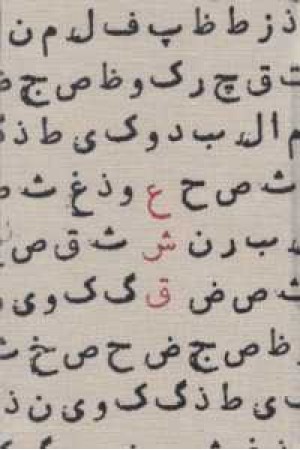 ذ ز ط ظ پ ف ل م ن
ت ق چ ر ک و ظ ص چ
م ا ل ب د و ک ی ط ذ
ث ص ح ع و ذ غ ث
ب ر ن ش ث ق ص
ث ص ض ق گ ک و ی
ظ ص چ ض ح ص خ ث
ی ط ذ گ ک و ی ن ذ